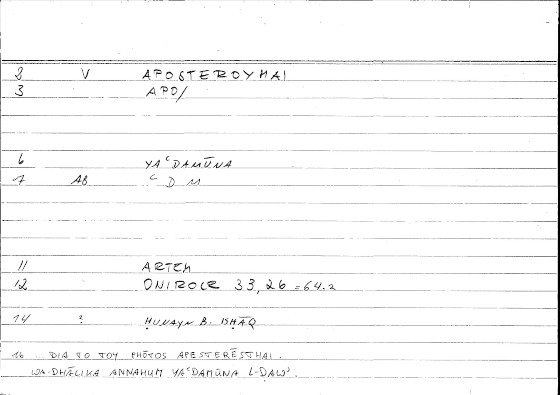 2 V APOSTEROYMAI
3 APO/
6 YAʿDAMŪNA
7 AB ʿ D M
11 ARTEM
12 ONIROCR 33,26 =64.2
14 ? ḤUNAYN B. ISḤĀQ
16 ... DIA TO TOY PHŌTOS APESTERĒSTHAI.
WA-DHĀLIKA ANNAHUM YAʿDAMŪNA L-ḌAWʾ.